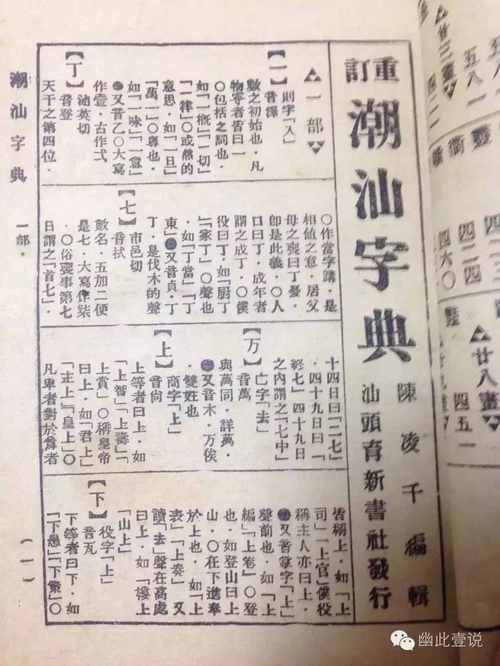 廿三畫
五八一
四二四
四六〇
廿八畫
四五一
重訂
潮汕字典
陳凌千編輯
汕頭育新書社發行
△一部▽
【一】則字「入」
數之初始也．凡
物奇者皆曰一
○包括之詞也．
如「一概」「一切」
「一律」○或然的
意思．如「一旦」
「萬一」○專也．
如「一味」「一意」
●又音乙○大寫
作壹．古作弌
【丁】池英切
音登
天干之第四位．
○作當字講．是
相値之意．居父
母之喪曰丁憂．
即是此義．○人
口曰丁．成年者
謂之成丁．○僕
役曰丁．如「厨丁」
「家丁」○聲也
．如「丁當」「丁
東」●又音貞．丁
丁．是伐木的聲
【七】市邑切
音拭
數名．五加二便
是七．大寫作柒
．○俗喪事第七
日謂之「首七」．
十四日曰「二七」
．四十九日曰「
終七」．四十九日
之內謂之「七中」
【万】亡字「去」
音萬
與萬同．詳萬．
●又音木．万俟
．雙姓也
【上】商字「上」
音向
上等者曰上．如
「上智」「上壽」「
上賞」○稱皇帝
曰上．如「君上」
「主上」「皇上」○
凡卑者對於尊者
皆稱上．如「上
司」「上官」僕役
稱主人亦曰上．
●又音掌字「上」
聲前也．如「上
編」「上卷」○登
也．如登山曰上
山．○在下進奉
於上也．如「上
表」「上奏」又
讀「去」聲在高處
曰上．如「樓上
「山上」
【下】役字「上」
音瓦
下等者曰下．如
「下愚」「下策」○
潮汕字典
一部．
（一）
幽此壹说